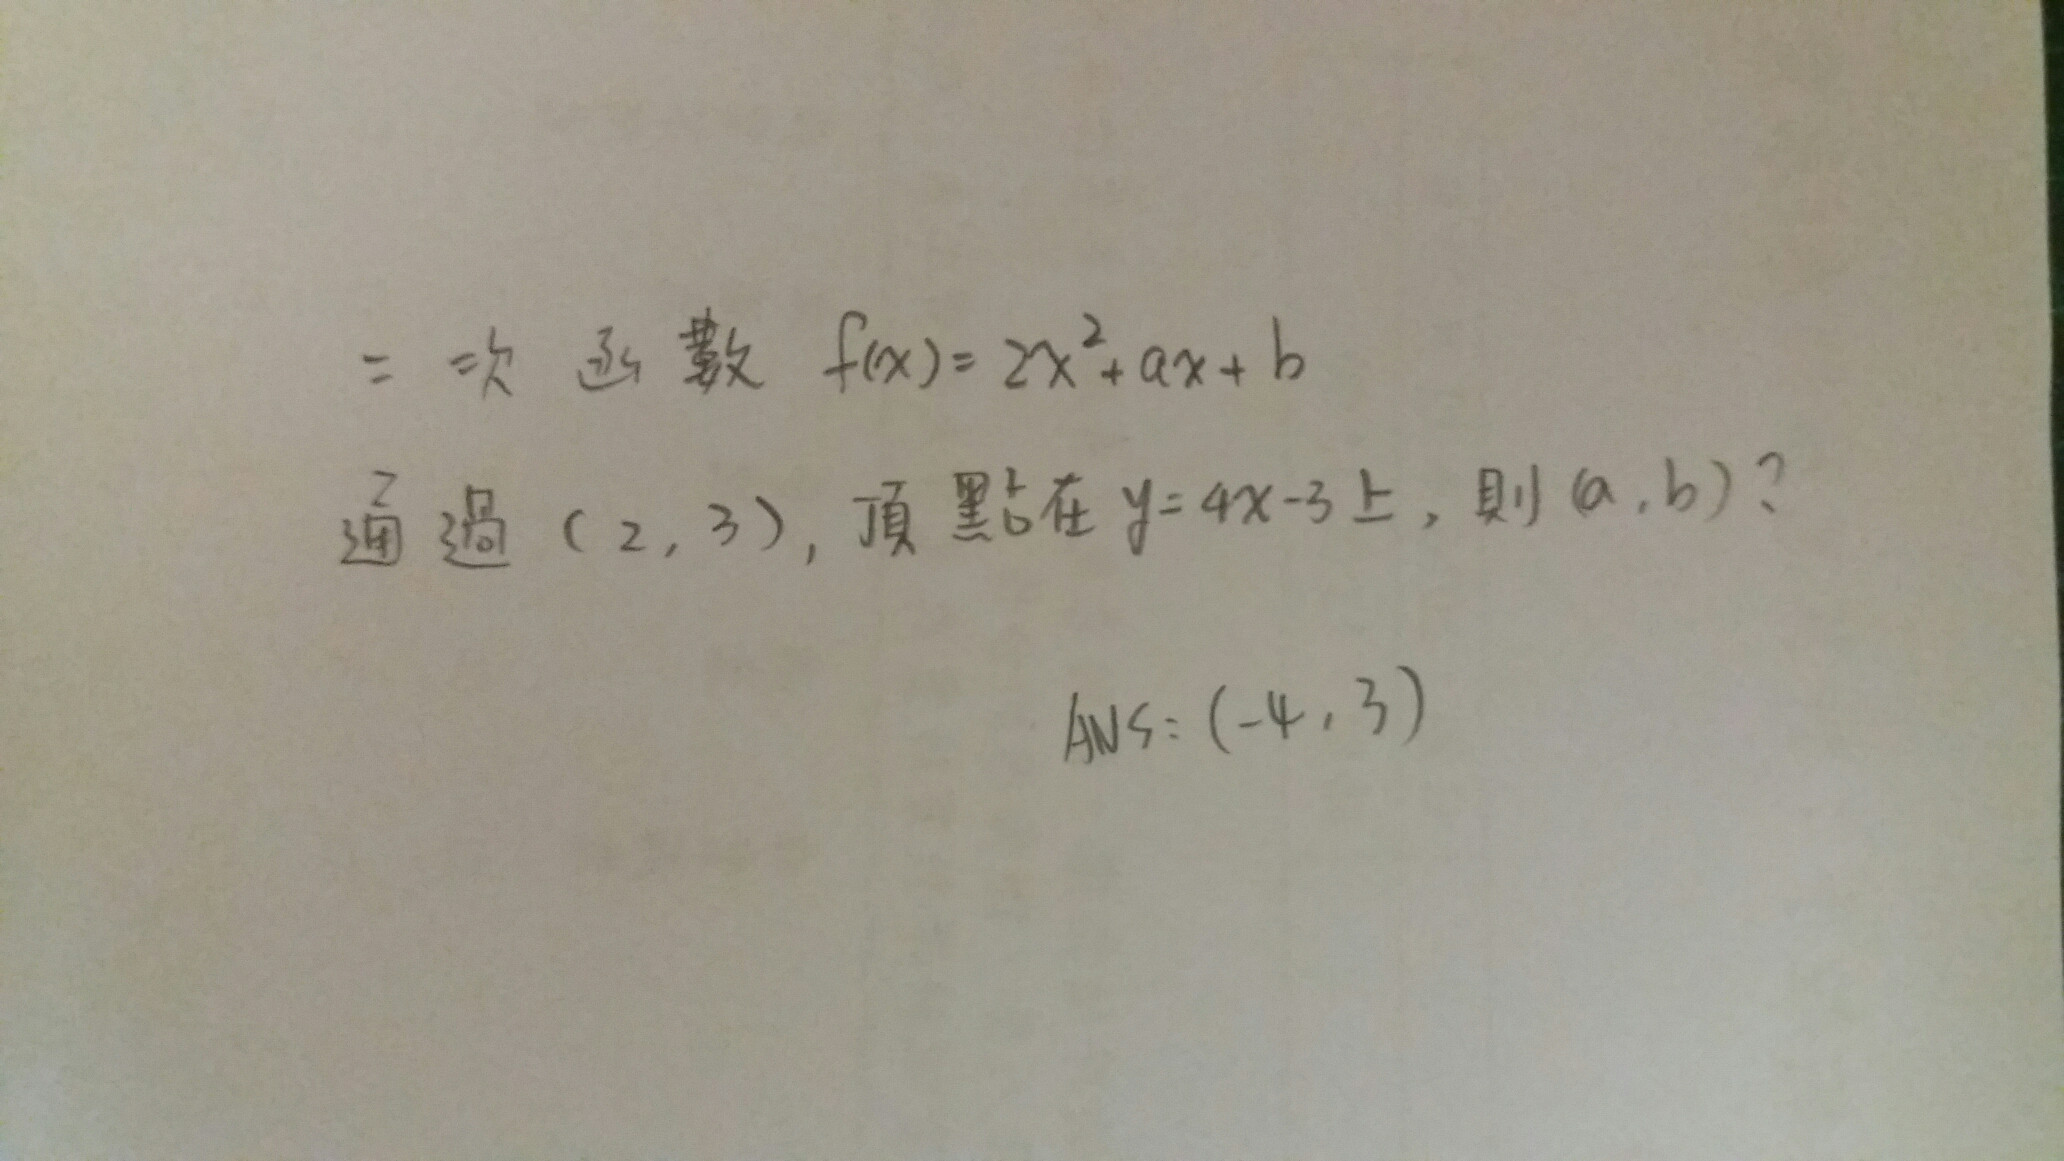 二次函數 f(x)=2x²+ax+b
通過(2,3),頂點在y=4x-3上,則(a,b)?
ANS:(-4,3)